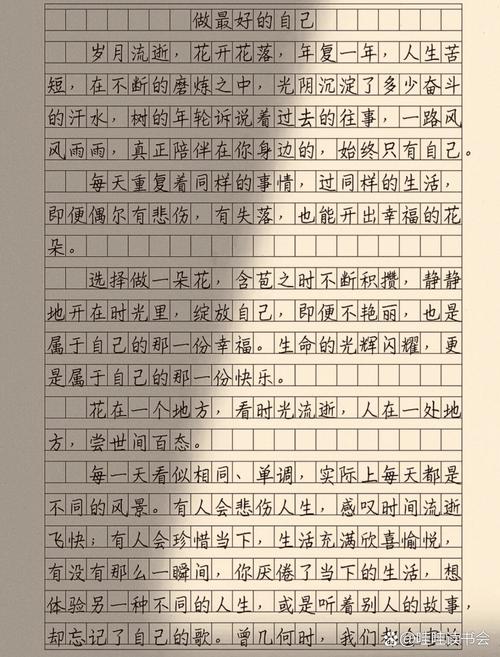 做最好的自己
岁月流逝，花开花落，年复一年，人生苦
短，在不断的磨炼之中，光阴沉淀了多少奋斗
的汗水，树的年轮诉说着过去的往事，一路风
风雨雨，真正陪伴在你身边的，始终只有自己。
每天重复着同样的事情，过同样的生活，
即便偶尔有悲伤，有失落，也能开出幸福的花
朵。
选择做一朵花，含苞之时不断积攒，静静
地开在时光里，绽放自己，即便不艳丽，也是
属于自己的那一份幸福。生命的光辉闪耀，更
是属于自己的那一份快乐。
花在一个地方，看时光流逝，人在一处地
方，尝世间百态。
每一天看似相同、单调，实际上每天都是
不同的风景。有人会悲伤人生，感叹时间流逝
飞快；有人会珍惜当下，生活充满欣喜愉悦，
有没有那么一瞬间，你厌倦了当下的生活，想
体验另一种不同的人生，或是听着别人的故事，
却忘记了自己的歌。曾几何时，我们
@哇哇读书会